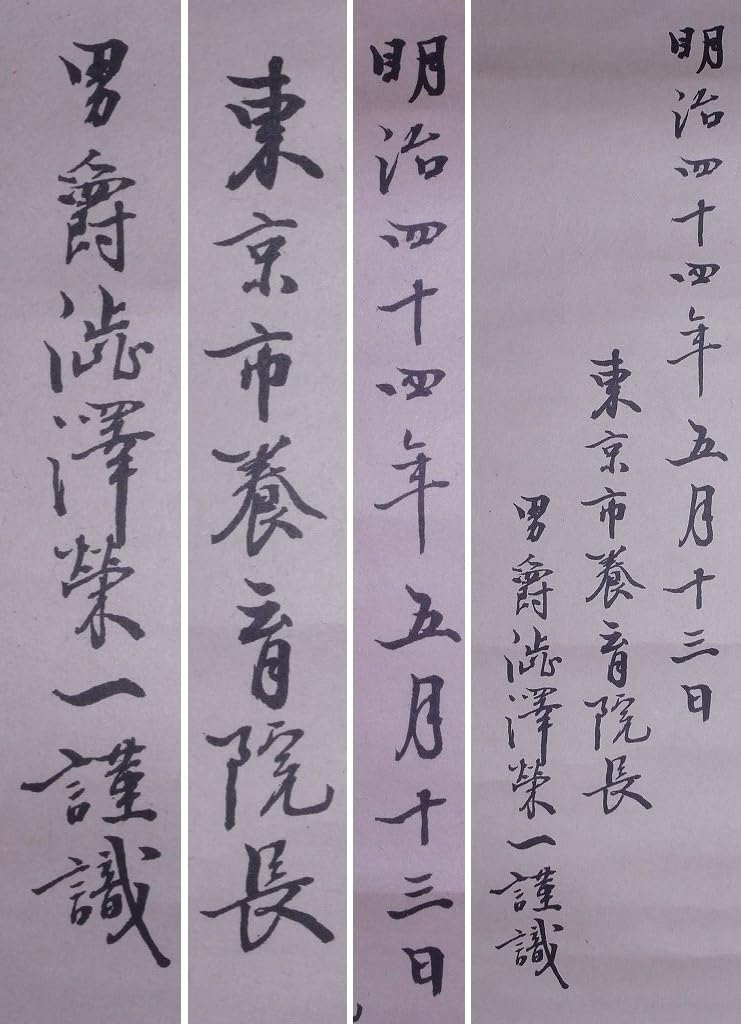 明治四十四年五月十三日
東京市養育院長
男爵澁澤榮一謹識
明治四十四年五月十三日
東京市養育院長
男爵澁澤榮一謹識